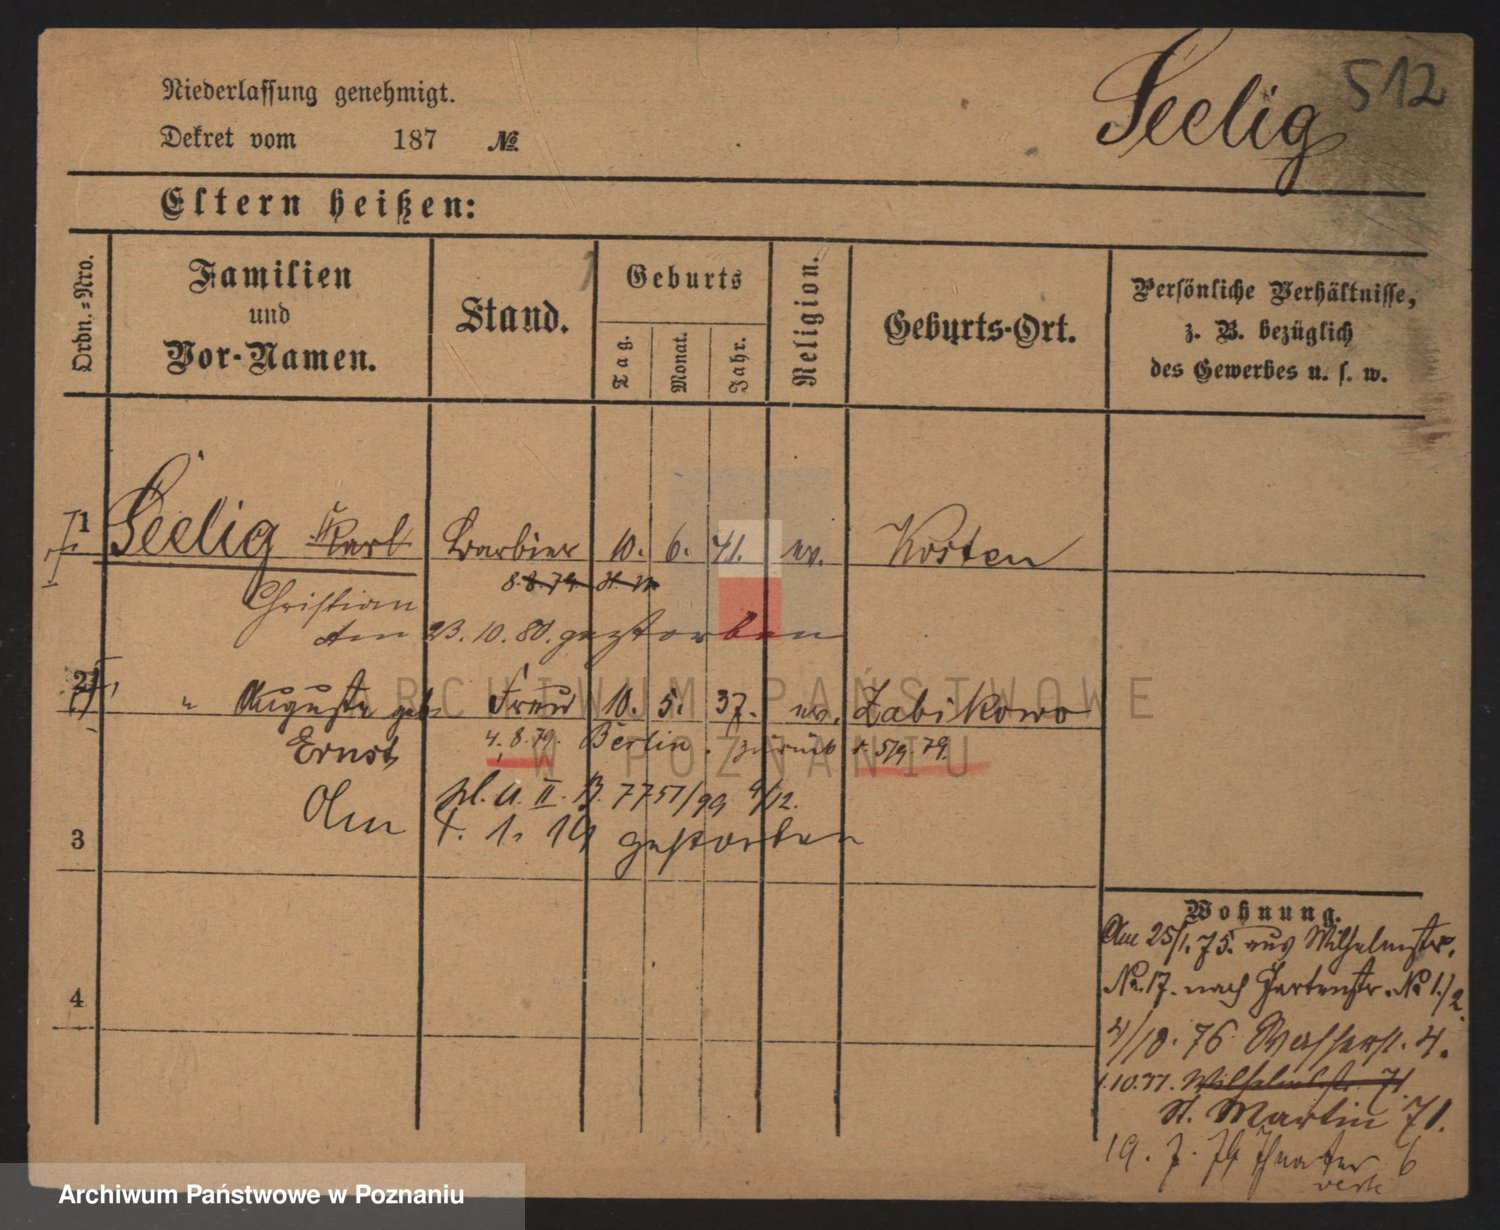 512
Seelig
Niederlassung genehmigt.
Dekret vom 187 №
Eltern heißen:
Ordn.-Nro.
Familien
und
Vor-Namen.
Stand.
Geburts
Tag.
Monat.
Jahr.
Religion.
Geburts-Ort.
Persönliche Verhältnisse,
z. B. bezüglich
des Gewerbes u. s. w.
1 Seelig Karl Barbier 10. 6. 41. ev. Kosten
8.8.79.
Christian
am 23.10.80. gestorben
2 " Auguste geb. Frau 10. 5. 37. ev. Zabikowo
Ernst 4.8.79. Berlin. zurück 5/9.79.
pl. A. II. B. 7757/99 9/12.
4. 1. 19 gestorben
3
4
Wohnung.
Am 25/1.75. aus Wilhelmstr.
No. 17. nach Gartenstr. No 1./2.
4/10.76 Wasserst. 4.
1.10.77. Wilhelmstr. 71.
St. Martin 71.
19. 7. 79 Theater 6
ARCHIWUM PAŃSTWOWE
W POZNANIU
Archiwum Państwowe w Poznaniu